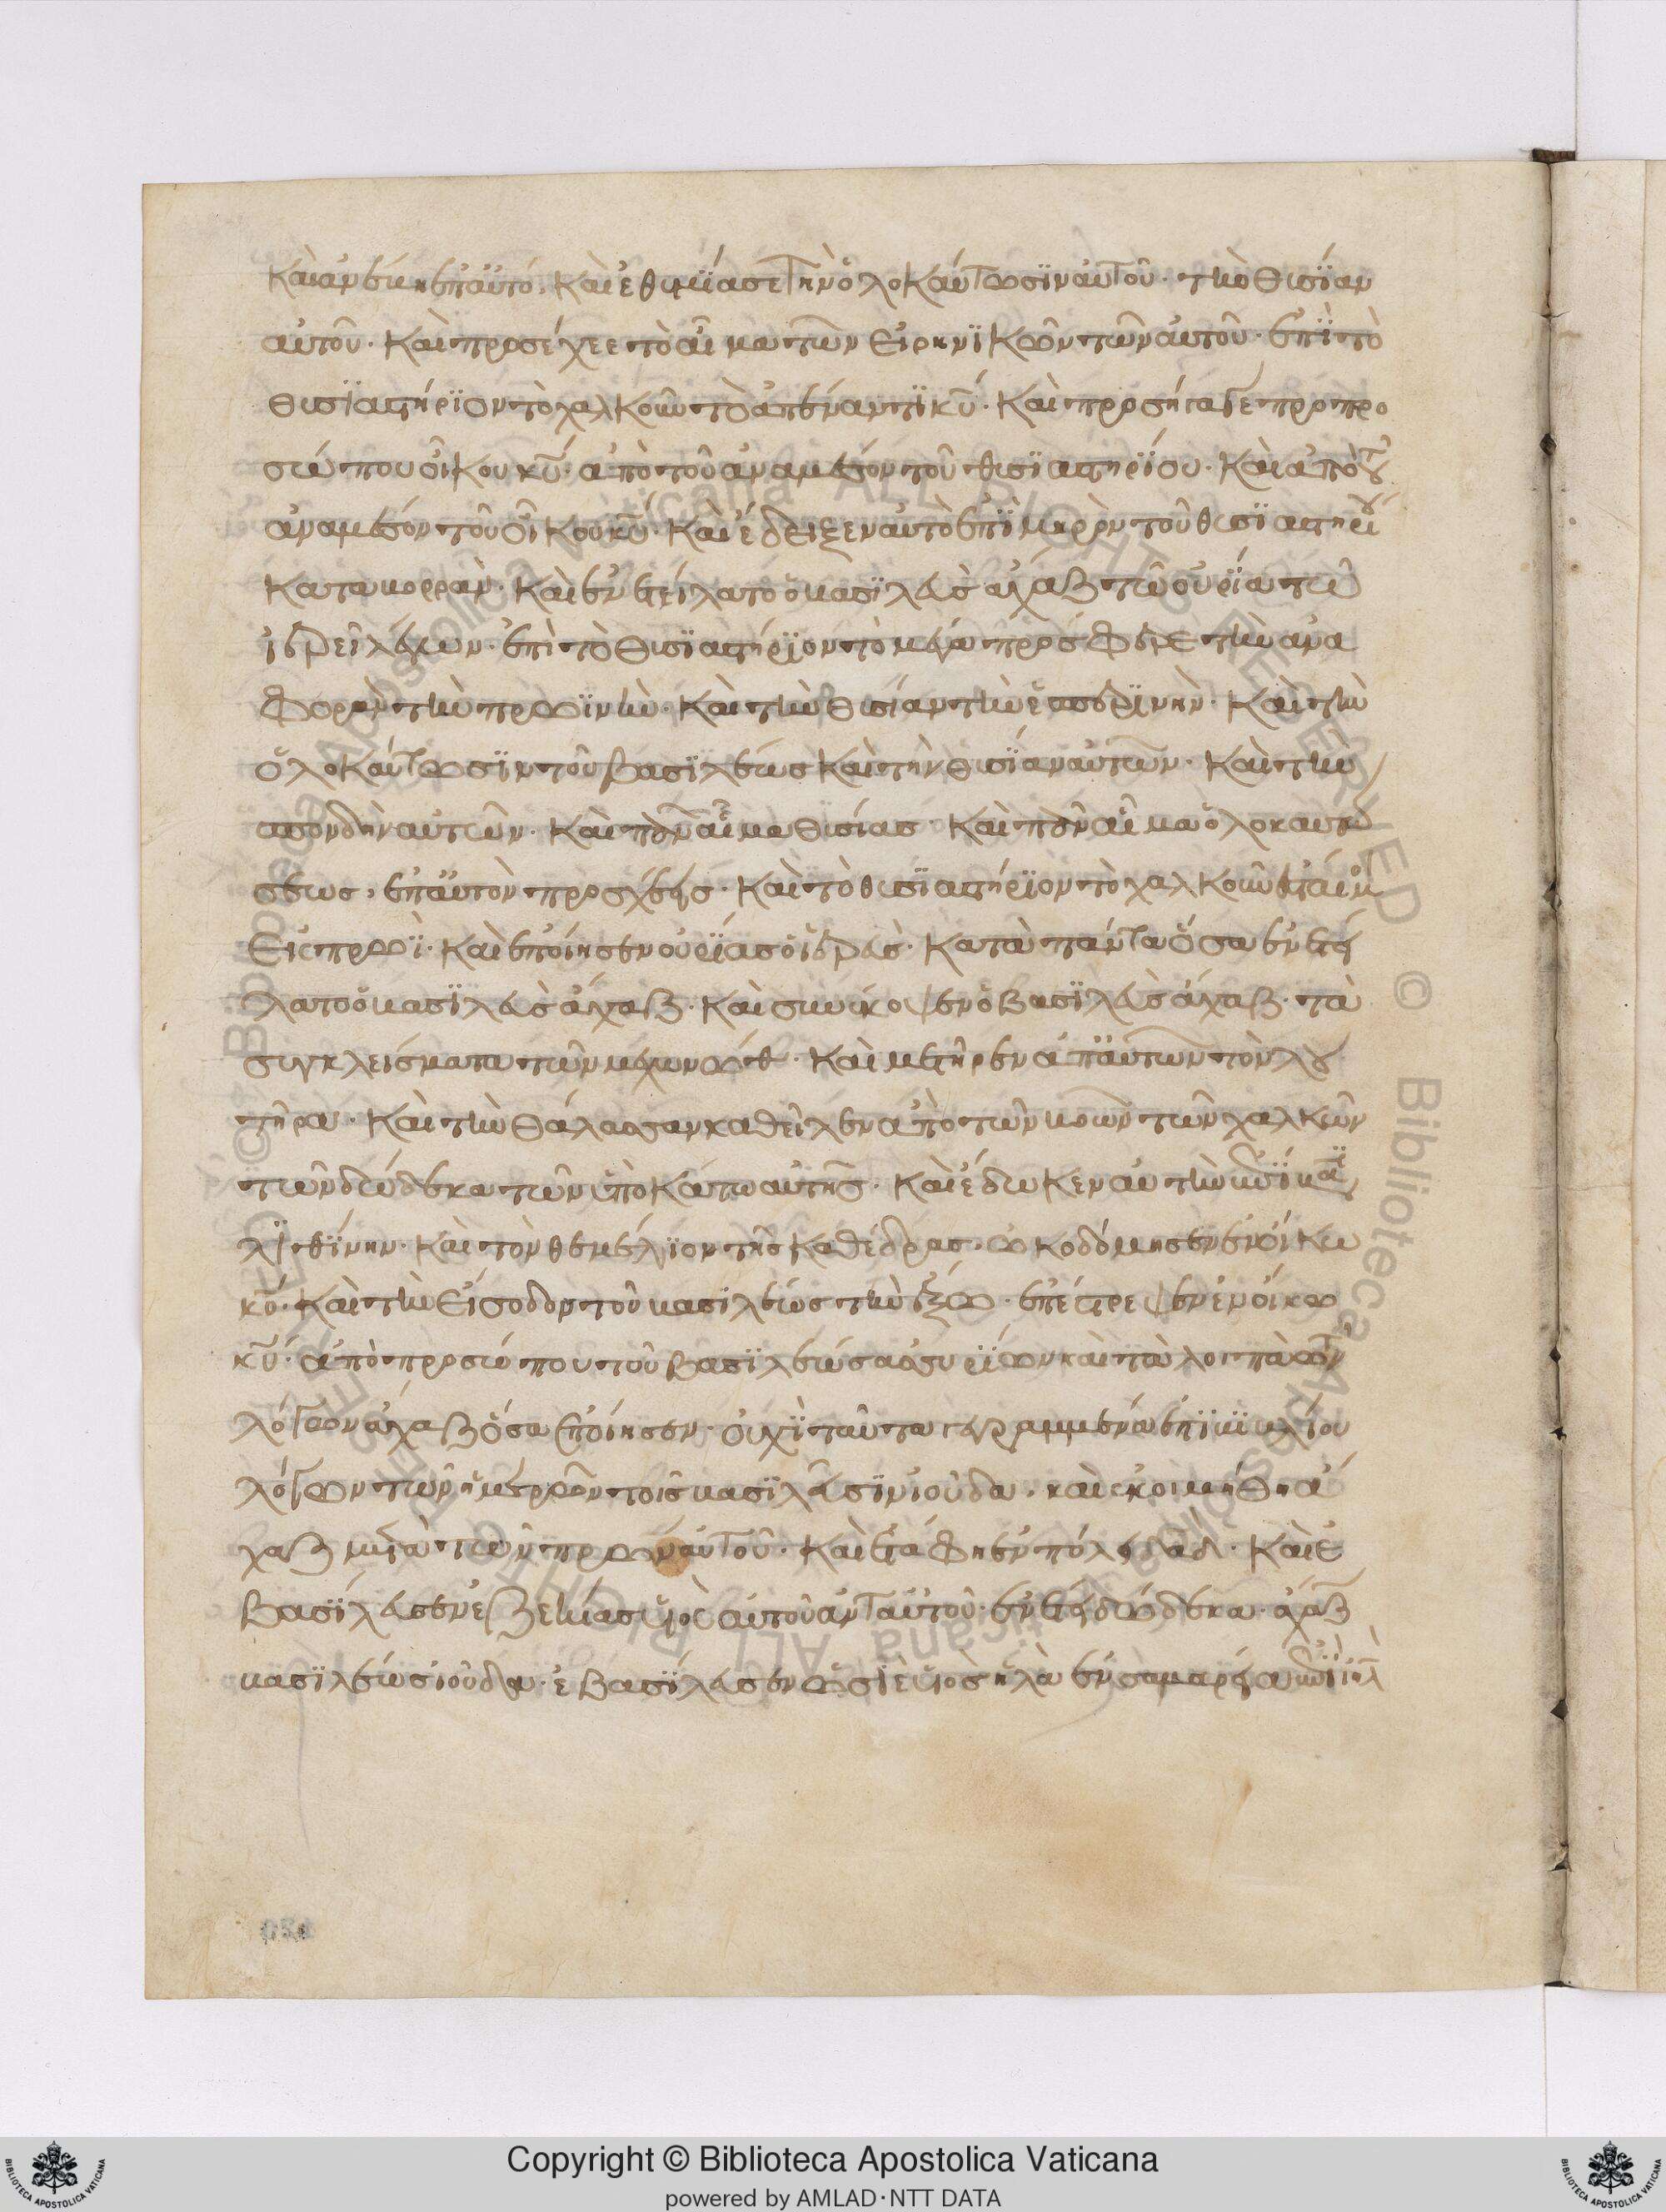 καὶ ἀνέβη ἐπ' αὐτό. καὶ ἐθυμίασε τὴν ὁλοκαύτωσϊν αὐτοῦ· τὴν θυσΐαν
αὐτοῦ· καὶ προσέχεε τὸ αἷμα τῶν εἰρηνϊκῶν τῶν αὐτοῦ· ἐπῒ τὸ
θυσϊαστήρϊον τὸ χαλκοῦν τὸ ἀπέναντϊ κ̅υ̅· καὶ προσήγαγε πρὸ προ
σώπου οἴκου κ̅υ̅· ἀπὸ τοῦ ἀναμέσον τοῦ θυσϊαστηρΐου· καὶ ἀπὸ τοῦ
ἀναμέσον τοῦ οἴκου κ̅υ̅· καὶ ἔδειξεν αὐτὸ ἐπῒ μηρὸν τοῦ θυσϊαστηρΐου
κατα βορρᾶν· καὶ ἐνετείλατο ὁ βασϊλεὺς ἄχαζ τῶ οὐρΐα τῶ
ἱερεῖ λέγων· ἐπὶ τὸ θυσϊαστήρϊον τὸ μέγα πρόσφερε τὴν ἀνα
φορὰν τὴν πρωϊνὴν· καὶ τὴν θυσίαν τὴν ἑσπερϊνὴν· καὶ τὴν
ὁλοκαύτωσϊν τοῦ βασϊλέως καὶ τὴν θυσΐαν αὐτῶν· καὶ τὴν
σπονδὴν αὐτῶν· καὶ πᾶν αἷμα θυσίας· καὶ πᾶν αἷμα ὁλοκαυτώ
σεως, ἐπ' αὐτὸν προσχέεις· καὶ τὸ θυσϊαστήρϊον τὸ χαλκοῦν ἔσται μοι
εἰς πρωΐ· καὶ ἐποίησεν οὐρΐας ὁ ἱερεὺς· κατὰ πάντα ὅσα ἐνετεί
λατο ὁ βασϊλεὺς ἄχαζ· καὶ συνέκοψεν ὁ βασϊλεὺς ἄχαζ· τὰ
συγκλείσματα τῶν μεχωνώθ· καὶ μετῆρεν ἀπ' αὐτῶν τὸν λου
τῆρα· καὶ τὴν θάλασσαν καθεῖλεν ἀπὸ τῶν βοῶν τῶν χαλκῶν
τῶν δώδεκα τῶν ὑποκάτω αὐτῆς· καὶ ἔδωκεν αὐτὴν ἐπῒ βάσιν
λϊθΐνην· καὶ τὸν θεμέλϊον τῆς καθέδρας· ὠκοδόμησεν ἐν οἴκω
κ̅υ̅· καὶ τὴν εἴσοδον τοῦ βασιλέως τὴν ἔξω· ἐπέστρεψεν ἐν οἴκω
κ̅υ̅· ἀπὸ προσώπου τοῦ βασϊλέως ἀσσυρΐων καὶ τὰ λοιπὰ τῶν
λόγων ἄχαζ ὅσα ἐποίησεν· οὐχῒ ταῦτα γεγραμμένα ἐπῒ βϊβλίου
λόγων τῶν ἡμερῶν τοῖς βασϊλεῦσϊν ϊούδα· καὶ ἐκοιμήθη ἄ
χαζ μετὰ τῶν πρων αὐτοῦ· καὶ ἐτάφη ἐν πόλει δ̅α̅δ̅· καὶ ἐ
βασΐλευσεν ἐζεκίας ϋἱὸς αὐτοῦ ἀντ' αὐτοῦ· ἐν ἔτει δωδέκα· ἄχαζ
βασϊλέως ϊούδα· ἐβασΐλευσεν ὡσϊὲ ϋἱὸς ἠλὰ ἐν σαμαρεία ἐπῒ ι̅η̅λ̅
Copyright © Biblioteca Apostolica Vaticana
powered by AMLAD·NTT DATA